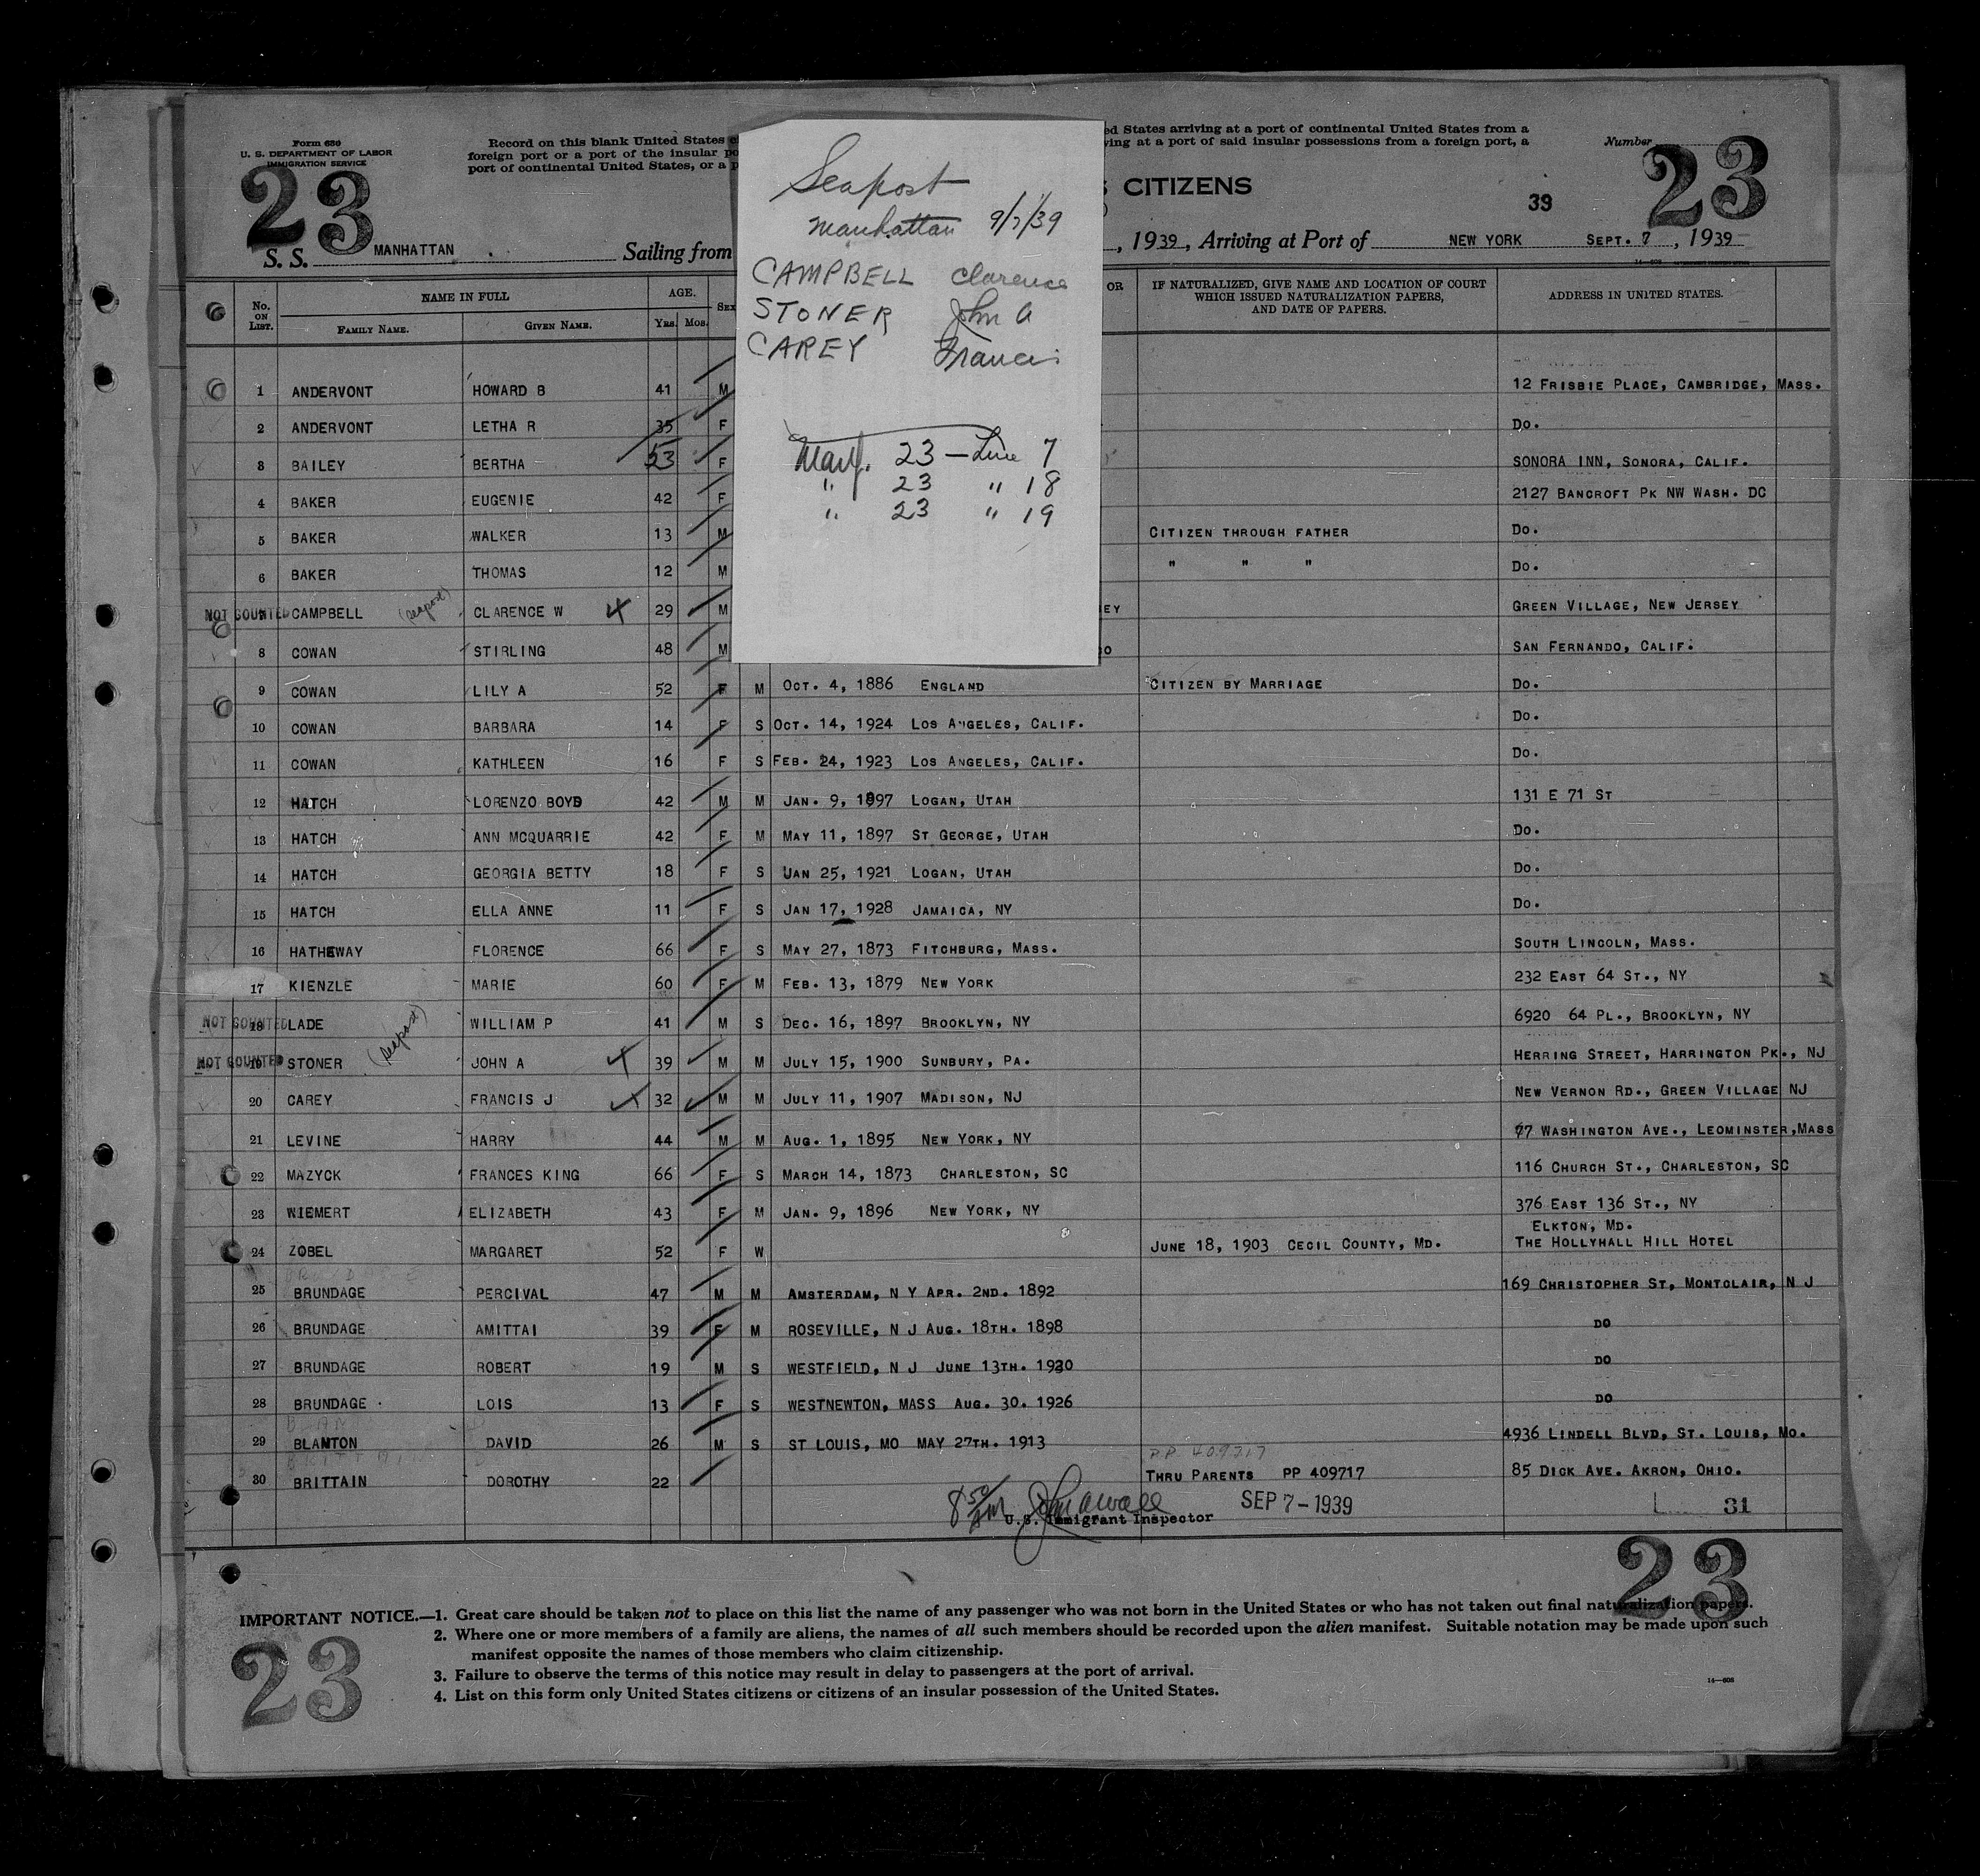 Form 630
U. S. DEPARTMENT OF LABOR
IMMIGRATION SERVICE
23
Record on this blank United States
foreign port or a port of the insular
port of continental United States, or a
ed States arriving at a port of continental United States from a
ving at a port of said insular possessions from a foreign port, a
Number
23
CITIZENS
39
S. S. MANHATTAN Sailing from , 1939, Arriving at Port of NEW YORK SEPT. 7, 1939
Seapost
Manhattan 9/7/39
CAMPBELL Clarence
STONER John A
CAREY Francis
Manf. 23 - Line 7
" 23 " 18
" 23 " 19
No. ON LIST. NAME IN FULL AGE. SEX OR IF NATURALIZED, GIVE NAME AND LOCATION OF COURT WHICH ISSUED NATURALIZATION PAPERS, AND DATE OF PAPERS. ADDRESS IN UNITED STATES.
FAMILY NAME. GIVEN NAME. YRS. MOS.
1 ANDERVONT HOWARD B 41 M 12 FRISBIE PLACE, CAMBRIDGE, MASS.
2 ANDERVONT LETHA R 35 F DO.
3 BAILEY BERTHA 53 F SONORA INN, SONORA, CALIF.
4 BAKER EUGENIE 42 F 2127 BANCROFT PK NW WASH. DC
5 BAKER WALKER 13 M CITIZEN THROUGH FATHER DO.
6 BAKER THOMAS 12 M " " " DO.
NOT COUNTED CAMPBELL (seapost) CLARENCE W 29 M EY GREEN VILLAGE, NEW JERSEY
8 COWAN STIRLING 48 M O SAN FERNANDO, CALIF.
9 COWAN LILY A 52 F M OCT. 4, 1886 ENGLAND CITIZEN BY MARRIAGE DO.
10 COWAN BARBARA 14 F S OCT. 14, 1924 LOS ANGELES, CALIF. DO.
11 COWAN KATHLEEN 16 F S FEB. 24, 1923 LOS ANGELES, CALIF. DO.
12 HATCH LORENZO BOYD 42 M M JAN. 9, 1897 LOGAN, UTAH 131 E 71 ST
13 HATCH ANN MCQUARRIE 42 F M MAY 11, 1897 ST GEORGE, UTAH DO.
14 HATCH GEORGIA BETTY 18 F S JAN 25, 1921 LOGAN, UTAH DO.
15 HATCH ELLA ANNE 11 F S JAN 17, 1928 JAMAICA, NY DO.
16 HATHEWAY FLORENCE 66 F S MAY 27, 1873 FITCHBURG, MASS. SOUTH LINCOLN, MASS.
17 KIENZLE MARIE 60 F M FEB. 13, 1879 NEW YORK 232 EAST 64 ST., NY
NOT COUNTED 18 LADE WILLIAM P 41 M S DEC. 16, 1897 BROOKLYN, NY 6920 64 PL., BROOKLYN, NY
NOT COUNTED 19 STONER (seapost) JOHN A 39 M M JULY 15, 1900 SUNBURY, PA. HERRING STREET, HARRINGTON PK., NJ
20 CAREY FRANCIS J 32 M M JULY 11, 1907 MADISON, NJ NEW VERNON RD., GREEN VILLAGE NJ
21 LEVINE HARRY 44 M M AUG. 1, 1895 NEW YORK, NY 77 WASHINGTON AVE., LEOMINSTER, MASS
22 MAZYCK FRANCES KING 66 F S MARCH 14, 1873 CHARLESTON, SC 116 CHURCH ST., CHARLESTON, SC
23 WIEMERT ELIZABETH 43 F M JAN. 9, 1896 NEW YORK, NY 376 EAST 136 ST., NY
ELKTON, MD.
24 ZOBEL MARGARET 52 F W JUNE 18, 1903 CECIL COUNTY, MD. THE HOLLYHALL HILL HOTEL
25 BRUNDAGE PERCIVAL 47 M M AMSTERDAM, N Y APR. 2ND. 1892 169 CHRISTOPHER ST, MONTCLAIR, N J
26 BRUNDAGE AMITTAI 39 F M ROSEVILLE, N J AUG. 18TH. 1898 DO
27 BRUNDAGE ROBERT 19 M S WESTFIELD, N J JUNE 13TH. 1920 DO
28 BRUNDAGE LOIS 13 F S WESTNEWTON, MASS AUG. 30. 1926 DO
29 BLANTON DAVID 26 M S ST LOUIS, MO MAY 27TH. 1913 4936 LINDELL BLVD, ST. LOUIS, MO.
PP 409717
30 BRITTAIN DOROTHY 22 THRU PARENTS PP 409717 85 DICK AVE. AKRON, OHIO.
8 50 AM SEP 7 - 1939 31
U.S. Immigrant Inspector
23
IMPORTANT NOTICE.—1. Great care should be taken not to place on this list the name of any passenger who was not born in the United States or who has not taken out final naturalization papers.
2. Where one or more members of a family are aliens, the names of all such members should be recorded upon the alien manifest. Suitable notation may be made upon such
manifest opposite the names of those members who claim citizenship.
3. Failure to observe the terms of this notice may result in delay to passengers at the port of arrival.
4. List on this form only United States citizens or citizens of an insular possession of the United States.
23
14—606